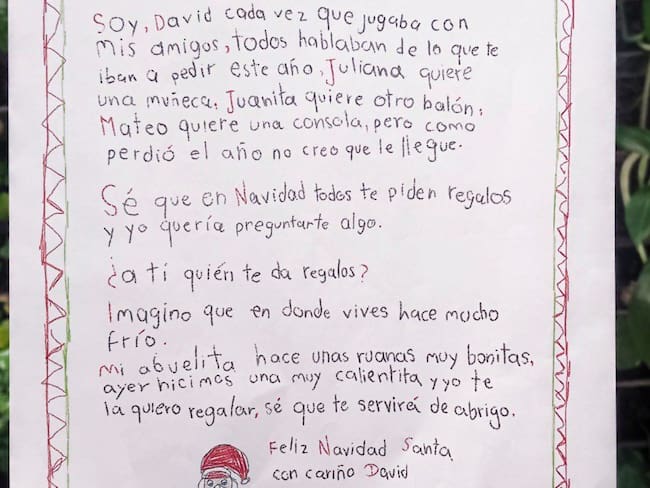 Soy, David cada vez que jugaba con
mis amigos, todos hablaban de lo que te
iban a pedir este año, Juliana quiere
una muñeca, Juanita quiere otro balón,
Mateo quiere una consola, pero como
perdió el año no creo que le llegue.
Sé que en Navidad todos te piden regalos
y yo quería preguntarte algo.
¿a ti quién te da regalos?
Imagino que en donde vives hace mucho
frío.
mi abuelita hace unas ruanas muy bonitas,
ayer hicimos una muy calientita y yo te
la quiero regalar, sé que te servirá de abrigo.
Feliz Navidad Santa
con cariño David